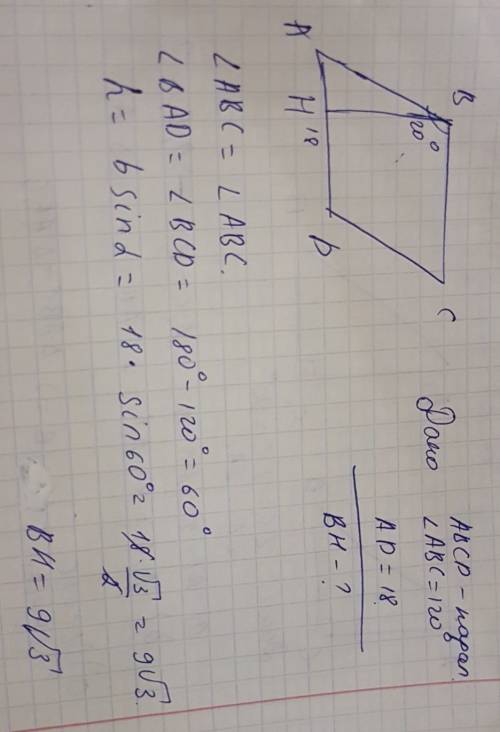 B
C
120°
A
H
18
D
Дано
ABCD - парал.
∠ABC = 120
AD = 18.
BH - ?
∠ABC = ∠ABC.
∠BAD = ∠BCD = 180° - 120° = 60°
h = b sin α = 18 · sin 60° = 18·√3/2 = 9√3.
BH = 9√3